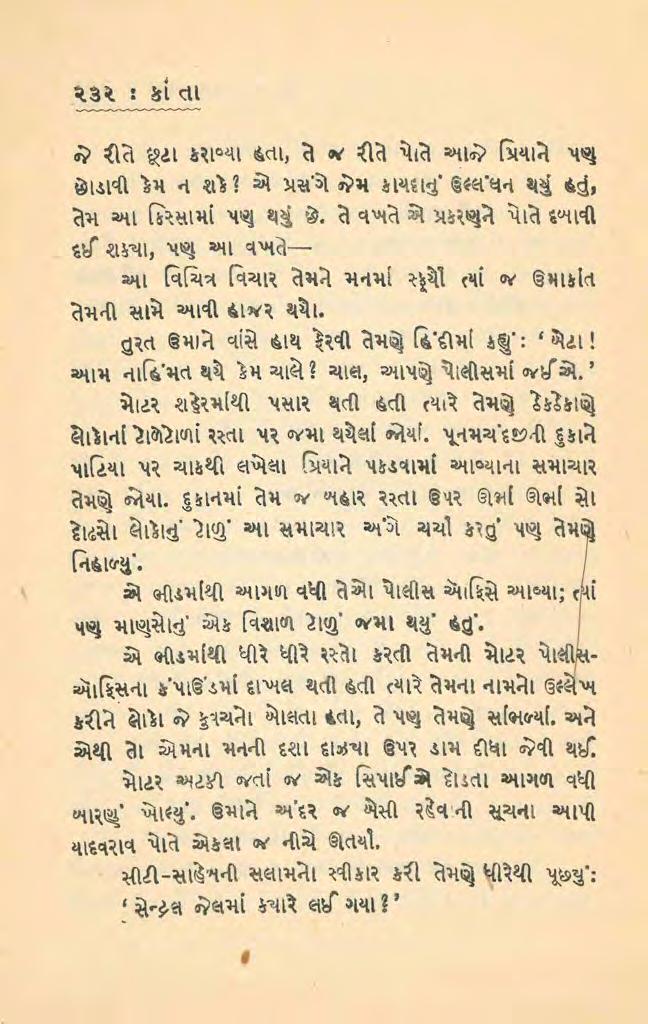 ૨૩૨ : કાંતા
જે રીતે છૂટા કરાવ્યા હતા, તે જ રીતે પોતે આજે પ્રિયાને પણ
છોડાવી કેમ ન શકે? એ પ્રસંગે જેમ કાયદાનું ઉલ્લંઘન થયું હતું,
તેમ આ કિસ્સામાં પણ થયું છે. તે વખતે એ પ્રકરણને પોતે દબાવી
દઈ શક્યા, પણ આ વખતે—
આ વિચિત્ર વિચાર તેમને મનમાં સ્ફૂર્યો ત્યાં જ ઉમાકાંત
તેમની સામે આવી હાજર થયો.
તુરત ઉમાને વાંસે હાથ ફેરવી તેમણે હિંદીમાં કહ્યું: ‘બેટા!
આમ નાહિંમત થયે કેમ ચાલે? ચાલ, આપણે પોલીસમાં જઈએ.’
મોટર શહેરમાંથી પસાર થતી હતી ત્યારે તેમણે ઠેકઠેકાણે
લોકોનાં ટોળેટોળાં રસ્તા પર જમા થયેલાં જોયાં. પૂનમચંદજીની દુકાને
પાટિયા પર ચાકથી લખેલા પ્રિયાને પકડવામાં આવ્યાના સમાચાર
તેમણે જોયા. દુકાનમાં તેમ જ બહાર રસ્તા ઉપર ઊભાં ઊભાં સો
દોઢસો લોકોનું ટોળું આ સમાચાર અંગે ચર્ચા કરતું પણ તેમણે
નિહાળ્યું.
એ ભીડમાંથી આગળ વધી તેઓ પોલીસ ઑફિસે આવ્યા; ત્યાં
પણ માણસોનું એક વિશાળ ટોળું જમા થયું હતું.
એ ભીડમાંથી ધીરે ધીરે રસ્તો કરતી તેમની મોટર પોલીસ-
ઑફિસના કંપાઉંડમાં દાખલ થતી હતી ત્યારે તેમના નામનો ઉલ્લેખ
કરીને લોકો જે કુવચનો બોલતા હતા, તે પણ તેમણે સાંભળ્યાં. અને
એથી તો એમના મનની દશા દાઝ્યા ઉપર ડામ દીધા જેવી થઈ.
મોટર અટકી જતાં જ એક સિપાઈએ દોડતા આગળ વધી
બારણું ખોલ્યું. ઉમાને અંદર જ બેસી રહેવાની સૂચના આપી
યાદવરાવ પોતે એકલા જ નીચે ઊતર્યા.
સીટી-સાહેબની સલામનો સ્વીકાર કરી તેમણે ધીરેથી પૂછયું:
‘સેન્ટ્રલ જેલમાં ક્યારે લઈ ગયા?’